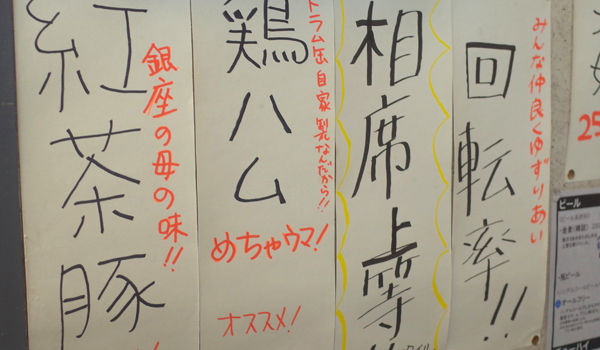 みんな仲良くゆずりあい
回転率!!
相席上等
ドラム缶自家製なんだから!!
鶏ハム
めちゃウマ!
オススメ!
銀座の母の味!!
紅茶豚
ビール